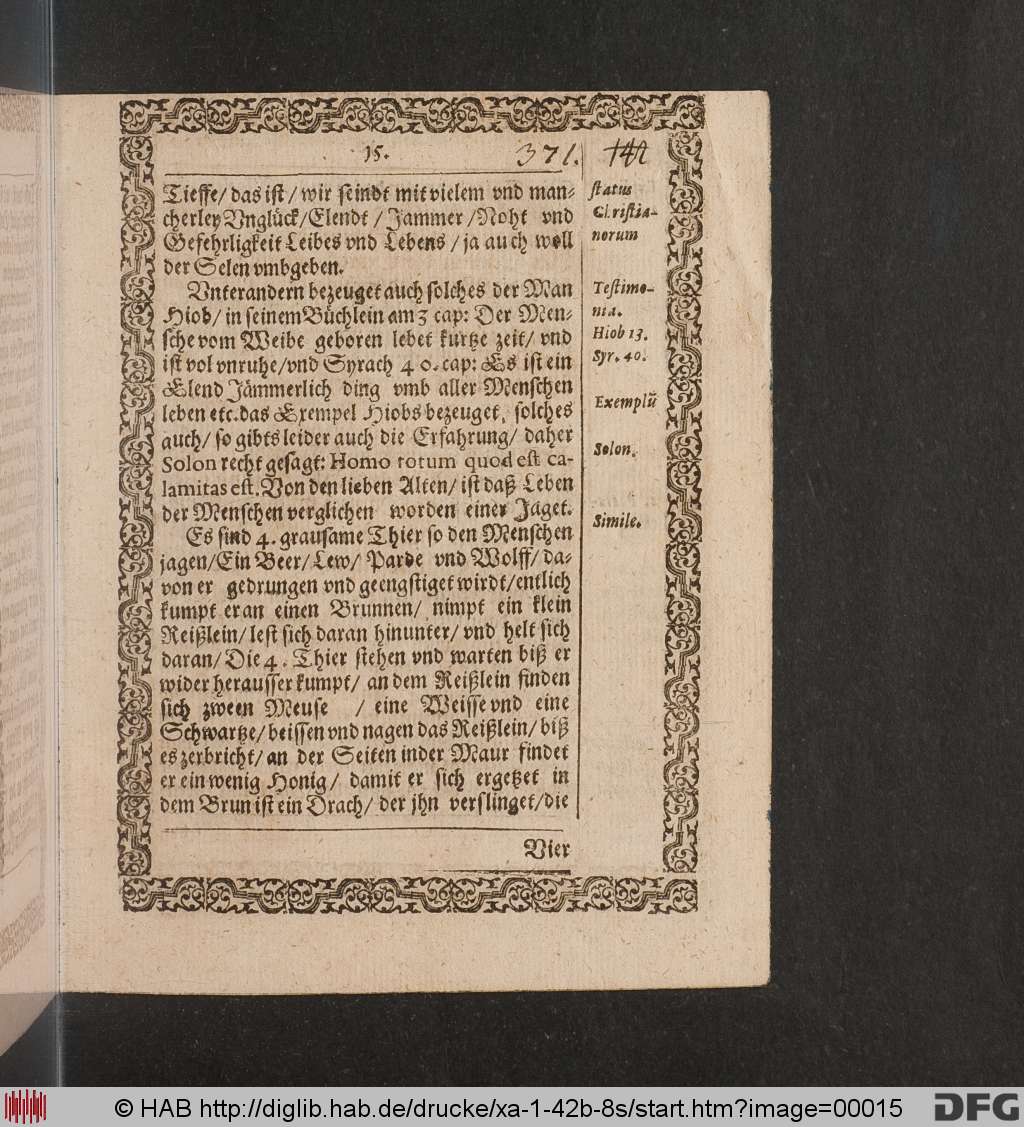 15.
371.
Tieffe/ das ist/ wir seindt mit vielem vnd man-
cherley Vnglück/ Elendt / Jammer /Noht vnd
Gefehrligkeit Leibes vnd Lebens / ja auch woll
der Selen vmbgeben.
Vnterandern bezeuget auch solches der Man
Hiob/ in seinem Büchlein am 3 cap: Der Men-
sche vom Weibe geboren lebet kurtze zeit/ vnd
ist vol vnruhe/vnd Syrach 4 0. cap: Es ist ein
Elend Jämmerlich ding vmb aller Menschen
leben etc. das Exempel Hiobs bezeuget, solches
auch/ so gibts leider auch die Erfahrung/ daher
Solon recht gesagt: Homo totum quod est ca-
lamitas est. Von den lieben Alten/ ist daß Leben
der Menschen verglichen worden einer Jaget.
Es sind 4. grausame Thier so den Menschen
jagen/Ein Beer/ Lew/ Parde vnd Wolff/ da-
von er gedrungen vnd geengstiget wirdt/entlich
kumpt er an einen Brunnen/ nimpt ein klein
Reißlein/ lest sich daran hinunter/ vnd helt sich
daran/ Die 4. Thier stehen vnd warten biß er
wider herausser kumpt/ an dem Reißlein finden
sich zween Meuse / eine Weisse vnd eine
Schwartze/ beissen vnd nagen das Reißlein/ biß
es zerbricht/ an der Seiten inder Maur findet
er ein wenig Honig/ damit er sich ergetzet in
dem Brun ist ein Drach/ der jhn verslinget/die
Vier
status
Christia-
norum
Testimo-
nia.
Hiob 13.
Syr. 40.
Exemplũ
Solon.
Simile.
© HAB http://diglib.hab.de/drucke/xa-1-42b-8s/start.htm?image=00015
DFG